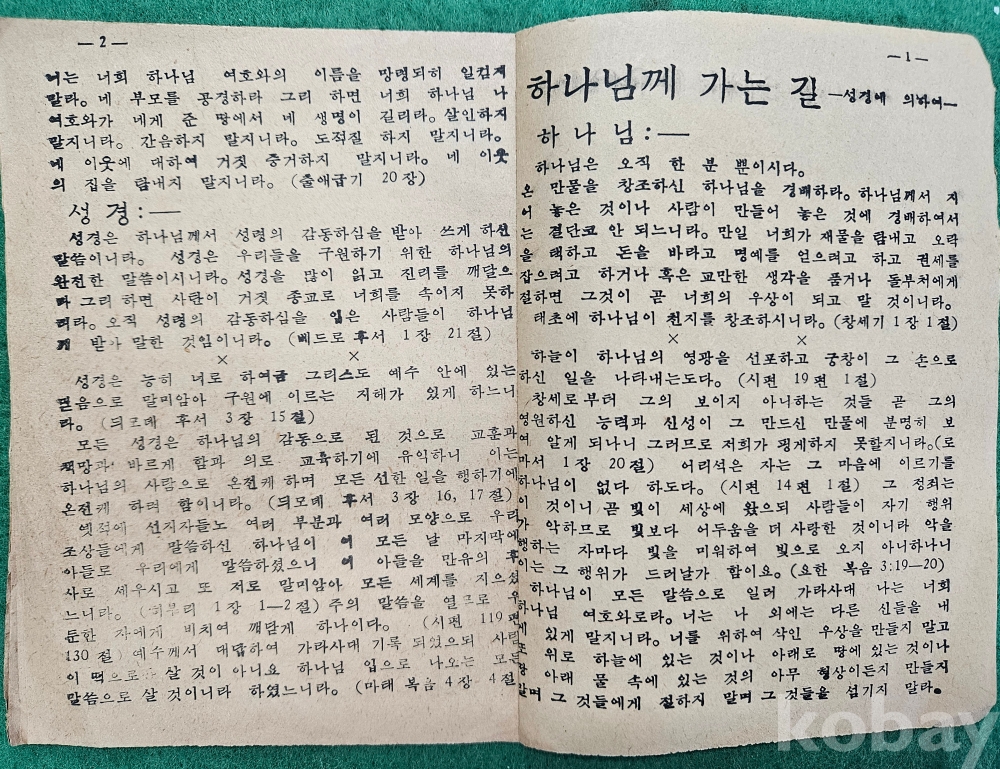 —1—
하나님께 가는 길 —성경에 의하여—
하 나 님 : —
하나님은 오직 한 분 뿐이시다.
온 만물을 창조하신 하나님을 경배하라. 하나님께서 지
어 놓은 것이나 사람이 만들어 놓은 것에 경배하여서
는 결단코 안 되느니라. 만일 너희가 재물을 탐내고 오락
을 택하고 돈을 바라고 명예를 얻으려고 하고 권세를
잡으려고 하거나 혹은 교만한 생각을 품거나 돌부처에게
절하면 그것이 곧 너희의 우상이 되고 말 것이니라.
태초에 하나님이 천지를 창조하시니라. (창세기 1 장 1 절)
× ×
하늘이 하나님의 영광을 선포하고 궁창이 그 손으로
하신 일을 나타내는도다. (시편 19 편 1 절)
창세로부터 그의 보이지 아니하는 것들 곧 그의
영원하신 능력과 신성이 그 만드신 만물에 분명히 보
여 알게 되나니 그러므로 저희가 핑게하지 못할지니라. (로
마서 1 장 20 절) 어리석은 자는 그 마음에 이르기를
하나님이 없다 하도다. (시편 14 편 1 절) 그 정죄는
이 것이니 곧 빛이 세상에 왔으되 사람들이 자기 행위
가 악하므로 빛보다 어두움을 더 사랑한 것이니라 악을
행하는 자마다 빛을 미워하여 빛으로 오지 아니하나니
이는 그 행위가 드러날가 함이요. (요한 복음 3:19—20)
하나님이 모든 말씀으로 일러 가라사대 나는 너희
하나님 여호와로라. 너는 나 외에는 다른 신들을 내
게 있게 말지니라. 너를 위하여 삭인 우상을 만들지 말고
또 위로 하늘에 있는 것이나 아래로 땅에 있는 것이나
땅 아래 물 속에 있는 것의 아무 형상이든지 만들지
말며 그 것들에게 절하지 말며 그 것들을 섬기지 말라.
—2—
너는 너희 하나님 여호와의 이름을 망령되히 일컫게
말라. 네 부모를 공경하라 그리 하면 너희 하나님 나
여호와가 네게 준 땅에서 네 생명이 길리라. 살인하지
말지니라. 간음하지 말지니라. 도적질 하지 말지니라.
네 이웃에 대하여 거짓 증거하지 말지니라. 네 이웃
의 집을 탐내지 말지니라. (출애급기 20 장)
성 경 : —
성경은 하나님께서 성령의 감동하심을 받아 쓰게 하신
말씀이니라. 성경은 우리들을 구원하기 위한 하나님의
완전한 말씀이시니라. 성경을 많이 읽고 진리를 깨달으
라 그리 하면 사람이 거짓 종교로 너희를 속이지 못하
리라. 오직 성령의 감동하심을 입은 사람들이 하나님
께 받아 말한 것임이니라. (베드로 후서 1 장 21 절)
× ×
성경은 능히 너로 하여금 그리스도 예수 안에 있는
믿음으로 말미암아 구원에 이르는 지혜가 있게 하느니
라. (듸모데 후서 3 장 15 절)
모든 성경은 하나님의 감동으로 된 것으로 교훈과
책망과 바르게 함과 의로 교육하기에 유익하니 이는
하나님의 사람으로 온전케 하며 모든 선한 일을 행하기에
온전케 하려 함이니라. (듸모데 후서 3 장 16, 17 절)
옛적에 선지자들노 여러 부분과 여러 모양으로 우리
조상들에게 말씀하신 하나님이 이 모든 날 마지막에
아들로 우리에게 말씀하셨으니 이 아들을 만유의 후
사로 세우시고 또 저로 말미암아 모든 세계를 지으셨
느니라. (히부리 1 장 1—2 절) 주의 말씀을 열므로 우
둔한 자에게 비치여 깨닫게 하나이다. (시편 119 편
130 절) 예수께서 대답하여 가라사대 기록 되었으되 사람
이 떡으로만 살 것이 아니요 하나님 입으로 나오는 모든
말씀으로 살 것이니라 하였느니라. (마태 복음 4 장 4 절
kobay